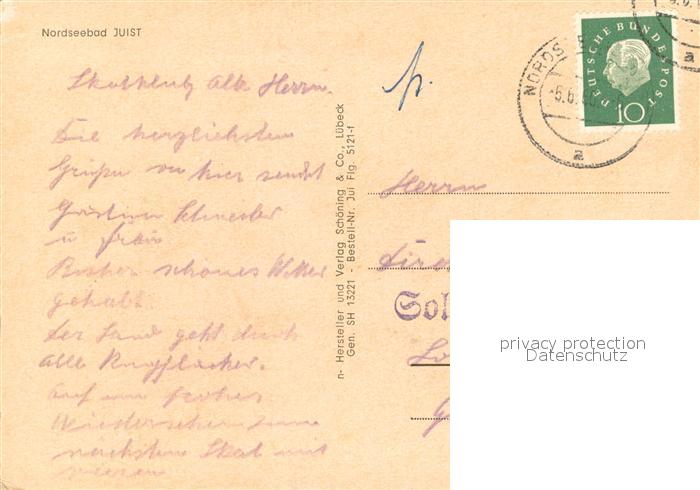 Nordseebad JUIST
Skatklub Alte Herrn.
Die herzlichsten
Grüße von hier sendet
Schneider
u frau
Bisher schönes Wetter
gehabt.
Der Sand geht durch
alle
auf ein frohes
Wiedersehen zum
nächsten Skat mit
n- Hersteller und Verlag Schöning & Co., Lübeck
Gen. SH 13221 - Bestell-Nr. Jui Flg. 5121-f
DEUTSCHE BUNDESPOST
10
NORDS
a
a
Herrn
Sol
privacy protection
Datenschutz